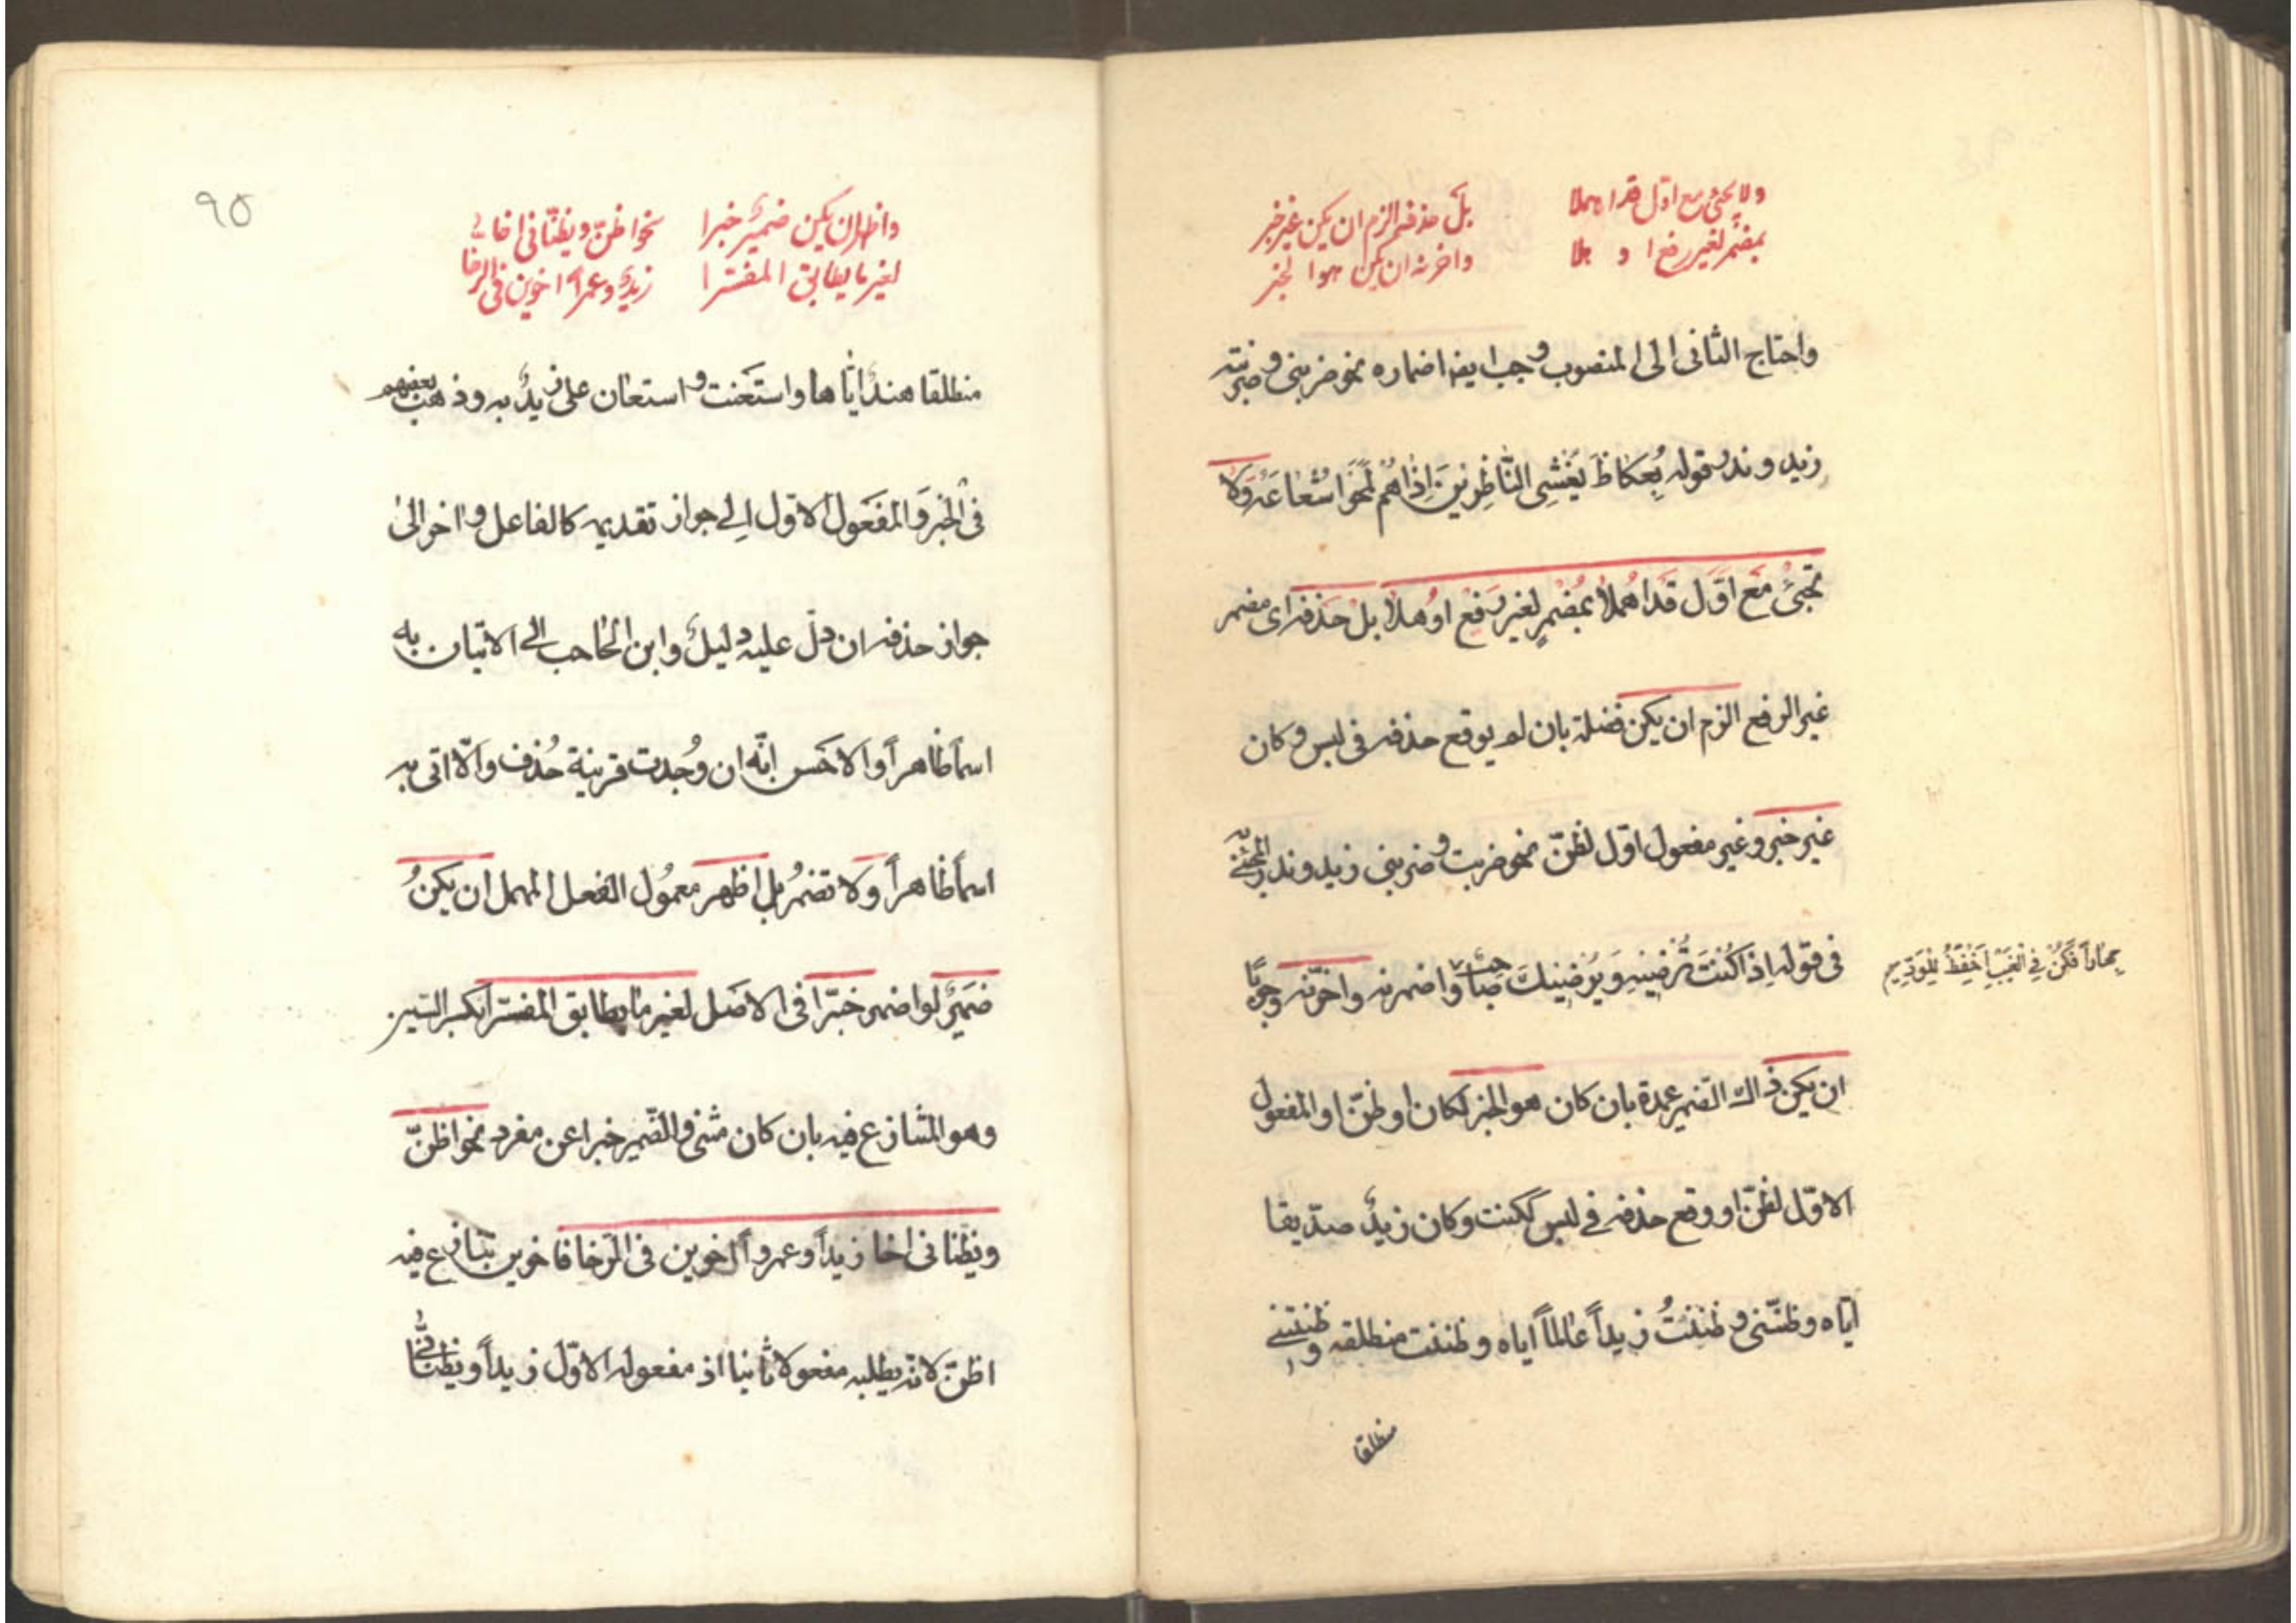 ولا تجئ مع اوّل قد اهملا
بمضمر لغير رفع اوهلا
بل حذفه الزم ان يكن غير خبر
واخرنه ان يكن هوا لخبر
واحتاج الثانى الى المنصوب وجب ايضا اضماره نحو ضربنى وضربته
زيد وندر قوله بُعكاظَ يُغشى النّاظِرينَ اِذا هُم لمَحَوا شُعاعَهُ ولا
تجئ مَعَ اوَّل قَد اهُملا بمُضمَرٍ لغير رَفع اوُهلا بل حَذفه اى مضمر
غير الرفع الزم ان يكن فضلة بان لم يوقع حذفه فى لبس و كان
غير خبر وغير مفعول اوّل لظنّ نحو ضربت وضربنى زيد وندر المجئ به
فى قوله اِذا كُنتَ تُرضيهِ وَيُرضيكَ صاحبٌ واضمرنه واخّرنه وجوبًا
جِهاراً فَكُنْ فِى الْغَيْبِ اَحْفَظَ لِلْوُدِّ
ان يكن ذاك الضّمير عمدة بان كان هو الخبر لكان او ظنّ او المفعول
الاوّل لظنّ او وقع حذفه فے لبس ككنت وكان زيدٌ صدّيقا
ايّاه وظنّنى وظننتُ زيداً عالماً اياه وظننت منطلقه وظنتنے
منطلقا
٩٥
واظهر ان يكن ضميرٌ خبرا
لغير ما يطابق المفسّرا
نحو اظنّ ويظنّانى اخا
زيدً وعمراً اخوين فى الرخا
منطلقا هندٌ ايّاها واستَعَنت واستعان علىّ زيدٌ به وذهب بعضهم
فى الخبر وَالمفعَول الاوّل اِلے جواز تقديمه كالفاعل واخر الىٰ
جواز حذفه ان دلّ عليه دليلٌ وابن الحاجب الے الاتيان به
اسماً ظاهراً والاحَسن انّه ان وُجدت قرينة حُذف والّا اتى به
اسماً ظاهراً ولا تضمرُ بل اظهر معمُول الفعل المهمل ان يكنُ
ضَميرٌ لو اضمر خبَرا فى الاصَل لغير ما يطابق المفسّرا بكسر السّين
وهو المتنازع فيه بان كان مثنى والضّمير خبرا عن مفرد نحو اظنّ
ويظنّانى اخا زيداً وعمرواً اخوين فى الرّخا فاخوين تنازع فيه
اظنّ لانّه يطلبه مفعولا ثانيا اذ مفعوله الاوّل زيداً ويظنّانى